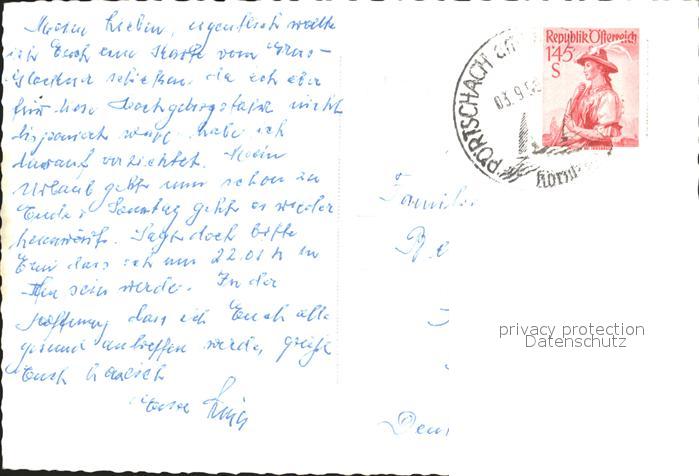 Meine Lieben, eigentlich wollte
ich Euch eine Karte vom Gross-
glockner schicken. da ich aber
für diese Hochgebirgsfahrt nicht
disponiert war, habe ich
darauf verzichtet. Mein
Urlaub geht nun schon zu
Ende, Sonntag geht es wieder
heimwärts. Sagt doch bitte
dass ich um 22.01 h in
sein werde. In der
Hoffnung dass ich Euch alle
gesund antreffen werde, grüße
Euch herzlich
Euer
Republik Österreich
1'45
S
PÖRTSCHACH a.
03.9.5
Kärnt
Familie
Be
Deu
privacy protection
Datenschutz